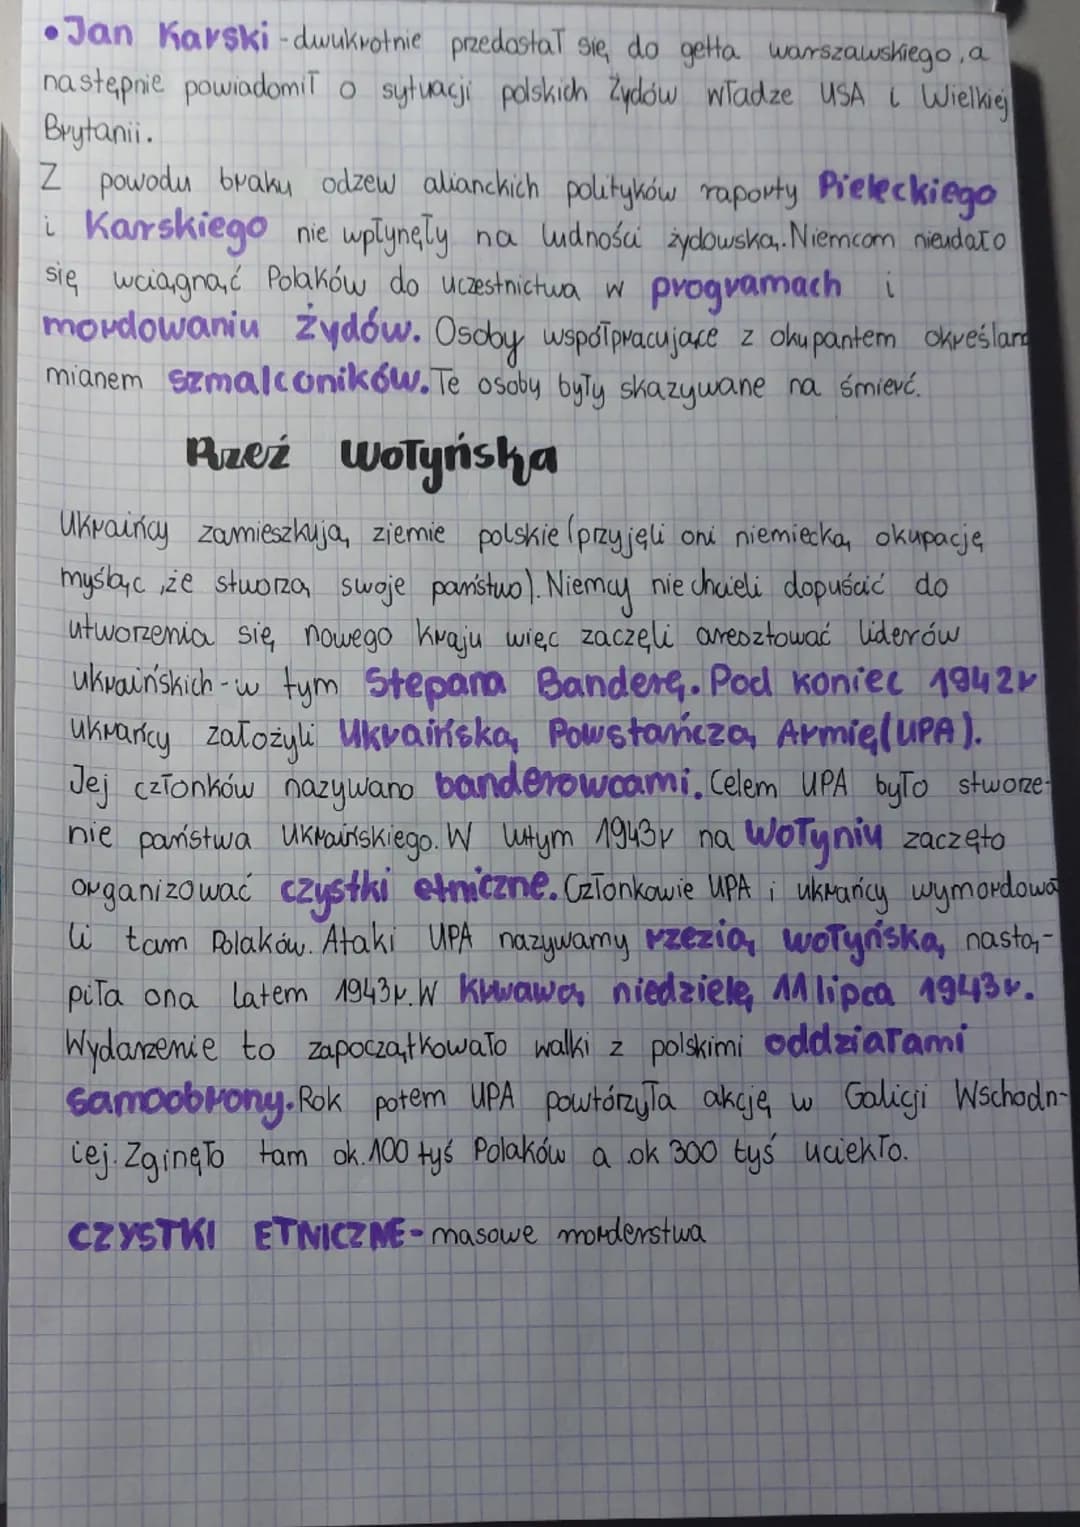 • Jan Karski - dwukrotnie przedostał się do getta warszawskiego, a
następnie powiadomił o sytuacji polskich Żydów władze USA i Wielkiej
Brytanii.
Z powodu braku odzew alianckich polityków raporty Pieleckiego
i Karskiego nie wpłynęły na ludności żydowską. Niemcom nieudało
się wciągnąć Polaków do uczestnictwa w programach i
mordowaniu żydów. Osoby współpracujące z okupantem określano
mianem szmalconików. Te osoby były skazywane na śmierć.
Rzeź Wołyńska
Ukraińcy zamieszkują ziemie polskie (przyjęli oni niemiecką okupację
myśląc, że stworzą swoje państwo). Niemcy nie chcieli dopuścić do
utworzenia się nowego kraju więc zaczęli aresztować liderów
ukraińskich - w tym Stepana Banderę. Pod koniec 1942r
ukrańcy założyli Ukraińską Powstańczą Armię (UPA).
Jej członków nazywano banderowcami. Celem UPA było stworze-
nie państwa ukraińskiego. W lutym 1943r na Wołyniu zaczęto
organizować czystki etniczne. Członkowie UPA i ukrańcy wymordowa
li tam Polaków. Ataki UPA nazywamy rzezią wołyńską nastą-
piła ona latem 1943r. W krwawą niedzielę 11 lipca 1943r.
Wydarzenie to zapoczątkowało walki z polskimi oddziałami
samoobrony. Rok potem UPA powtórzyła akcję w Galicji Wschodn-
iej. Zginęło tam ok. 100 tyś Polaków a ok 300 tyś uciekło.
CZYSTKI ETNICZNE - masowe morderstwa